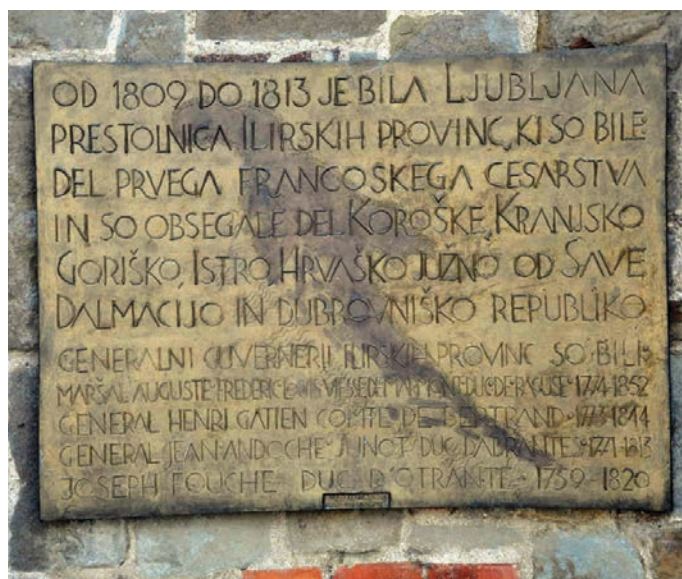 OD 1809 DO 1813 JE BILA LJUBLJANA
PRESTOLNICA ILIRSKIH PROVINC, KI SO BILE
DEL PRVEGA FRANCOSKEGA CESARSTVA
IN SO OBSEGALE DEL KOROŠKE, KRANJSKO
GORIŠKO, ISTRO, HRVAŠKO JUŽNO OD SAVE
DALMACIJO IN DUBROVNIŠKO REPUBLIKO
GENERALNI GUVERNERJI ILIRSKIH PROVINC SO BILI:
MARŠAL AUGUSTE·FREDERIC·LOUIS·VIESSE·DE·MARMONT·DUC·DE·RAGUSE·1774·1852
GENERAL HENRI GATIEN COMTE DE BERTRAND·1773·1844
GENERAL JEAN·ANDOCHE·JUNOT DUC D'ABRANTE<span></span>S·1771·1813
JOSEPH FOUCHE DUC D'OTRANTE·1759·1820